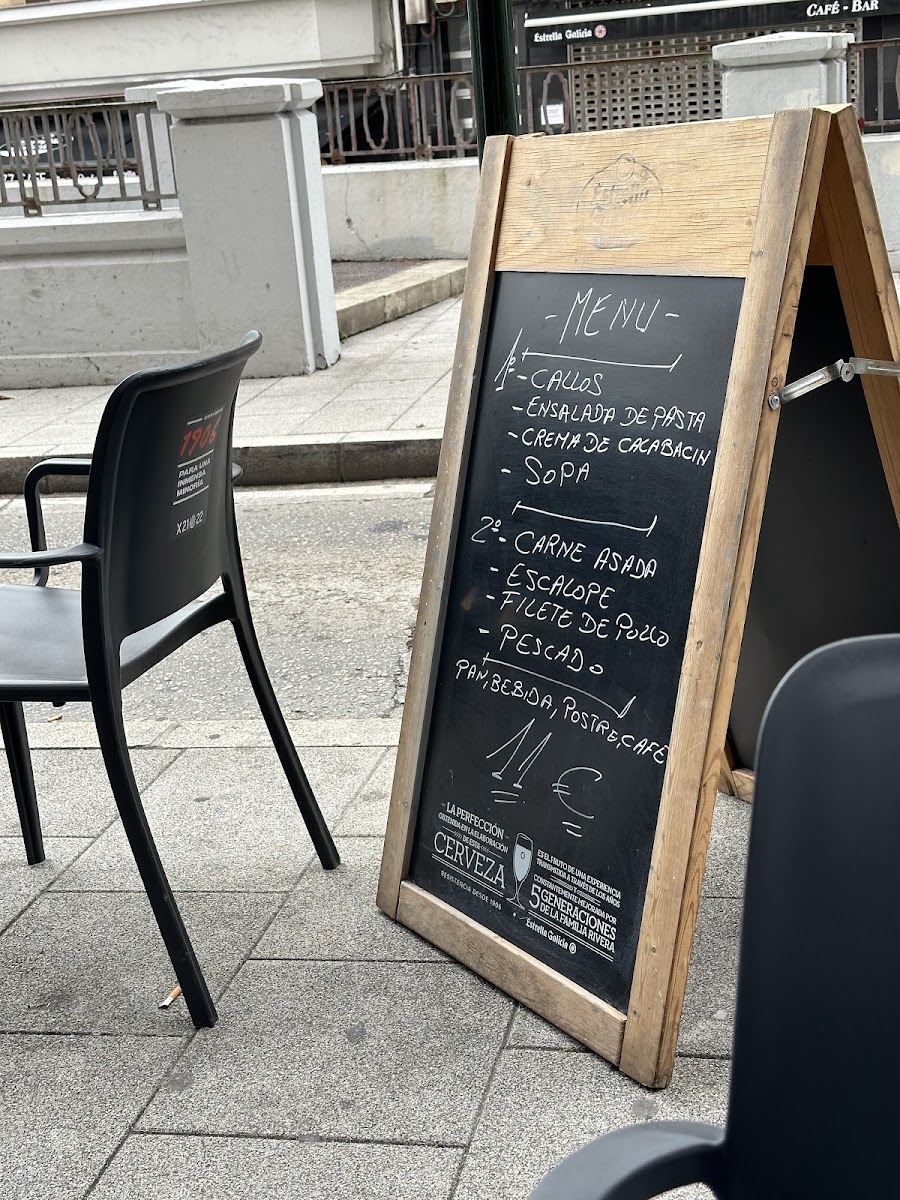 CAFÉ - BAR
Estrella Galicia
- MENU -
1º
- CALLOS
- ENSALADA DE PASTA
- CREMA DE CACABACIN
- SOPA
2º - CARNE ASADA
- ESCALOPE
- FILETE DE POLLO
- PESCADO
PAN, BEBIDA, POSTRE, CAFE
11 €
- LA PERFECCIÓN -
OBTENIDA EN LA ELABORACIÓN
DE ESTA
CERVEZA
RESISTENCIA DESDE 1906
ES EL FRUTO DE UNA EXPERIENCIA
TRANSMITIDA A TRAVÉS DE LOS AÑOS
CONSTANTEMENTE MEJORADA POR
5 GENERACIONES
DE LA FAMILIA RIVERA
Estrella Galicia
1906
PARA UNA
INMENSA
MINORÍA
X21 22